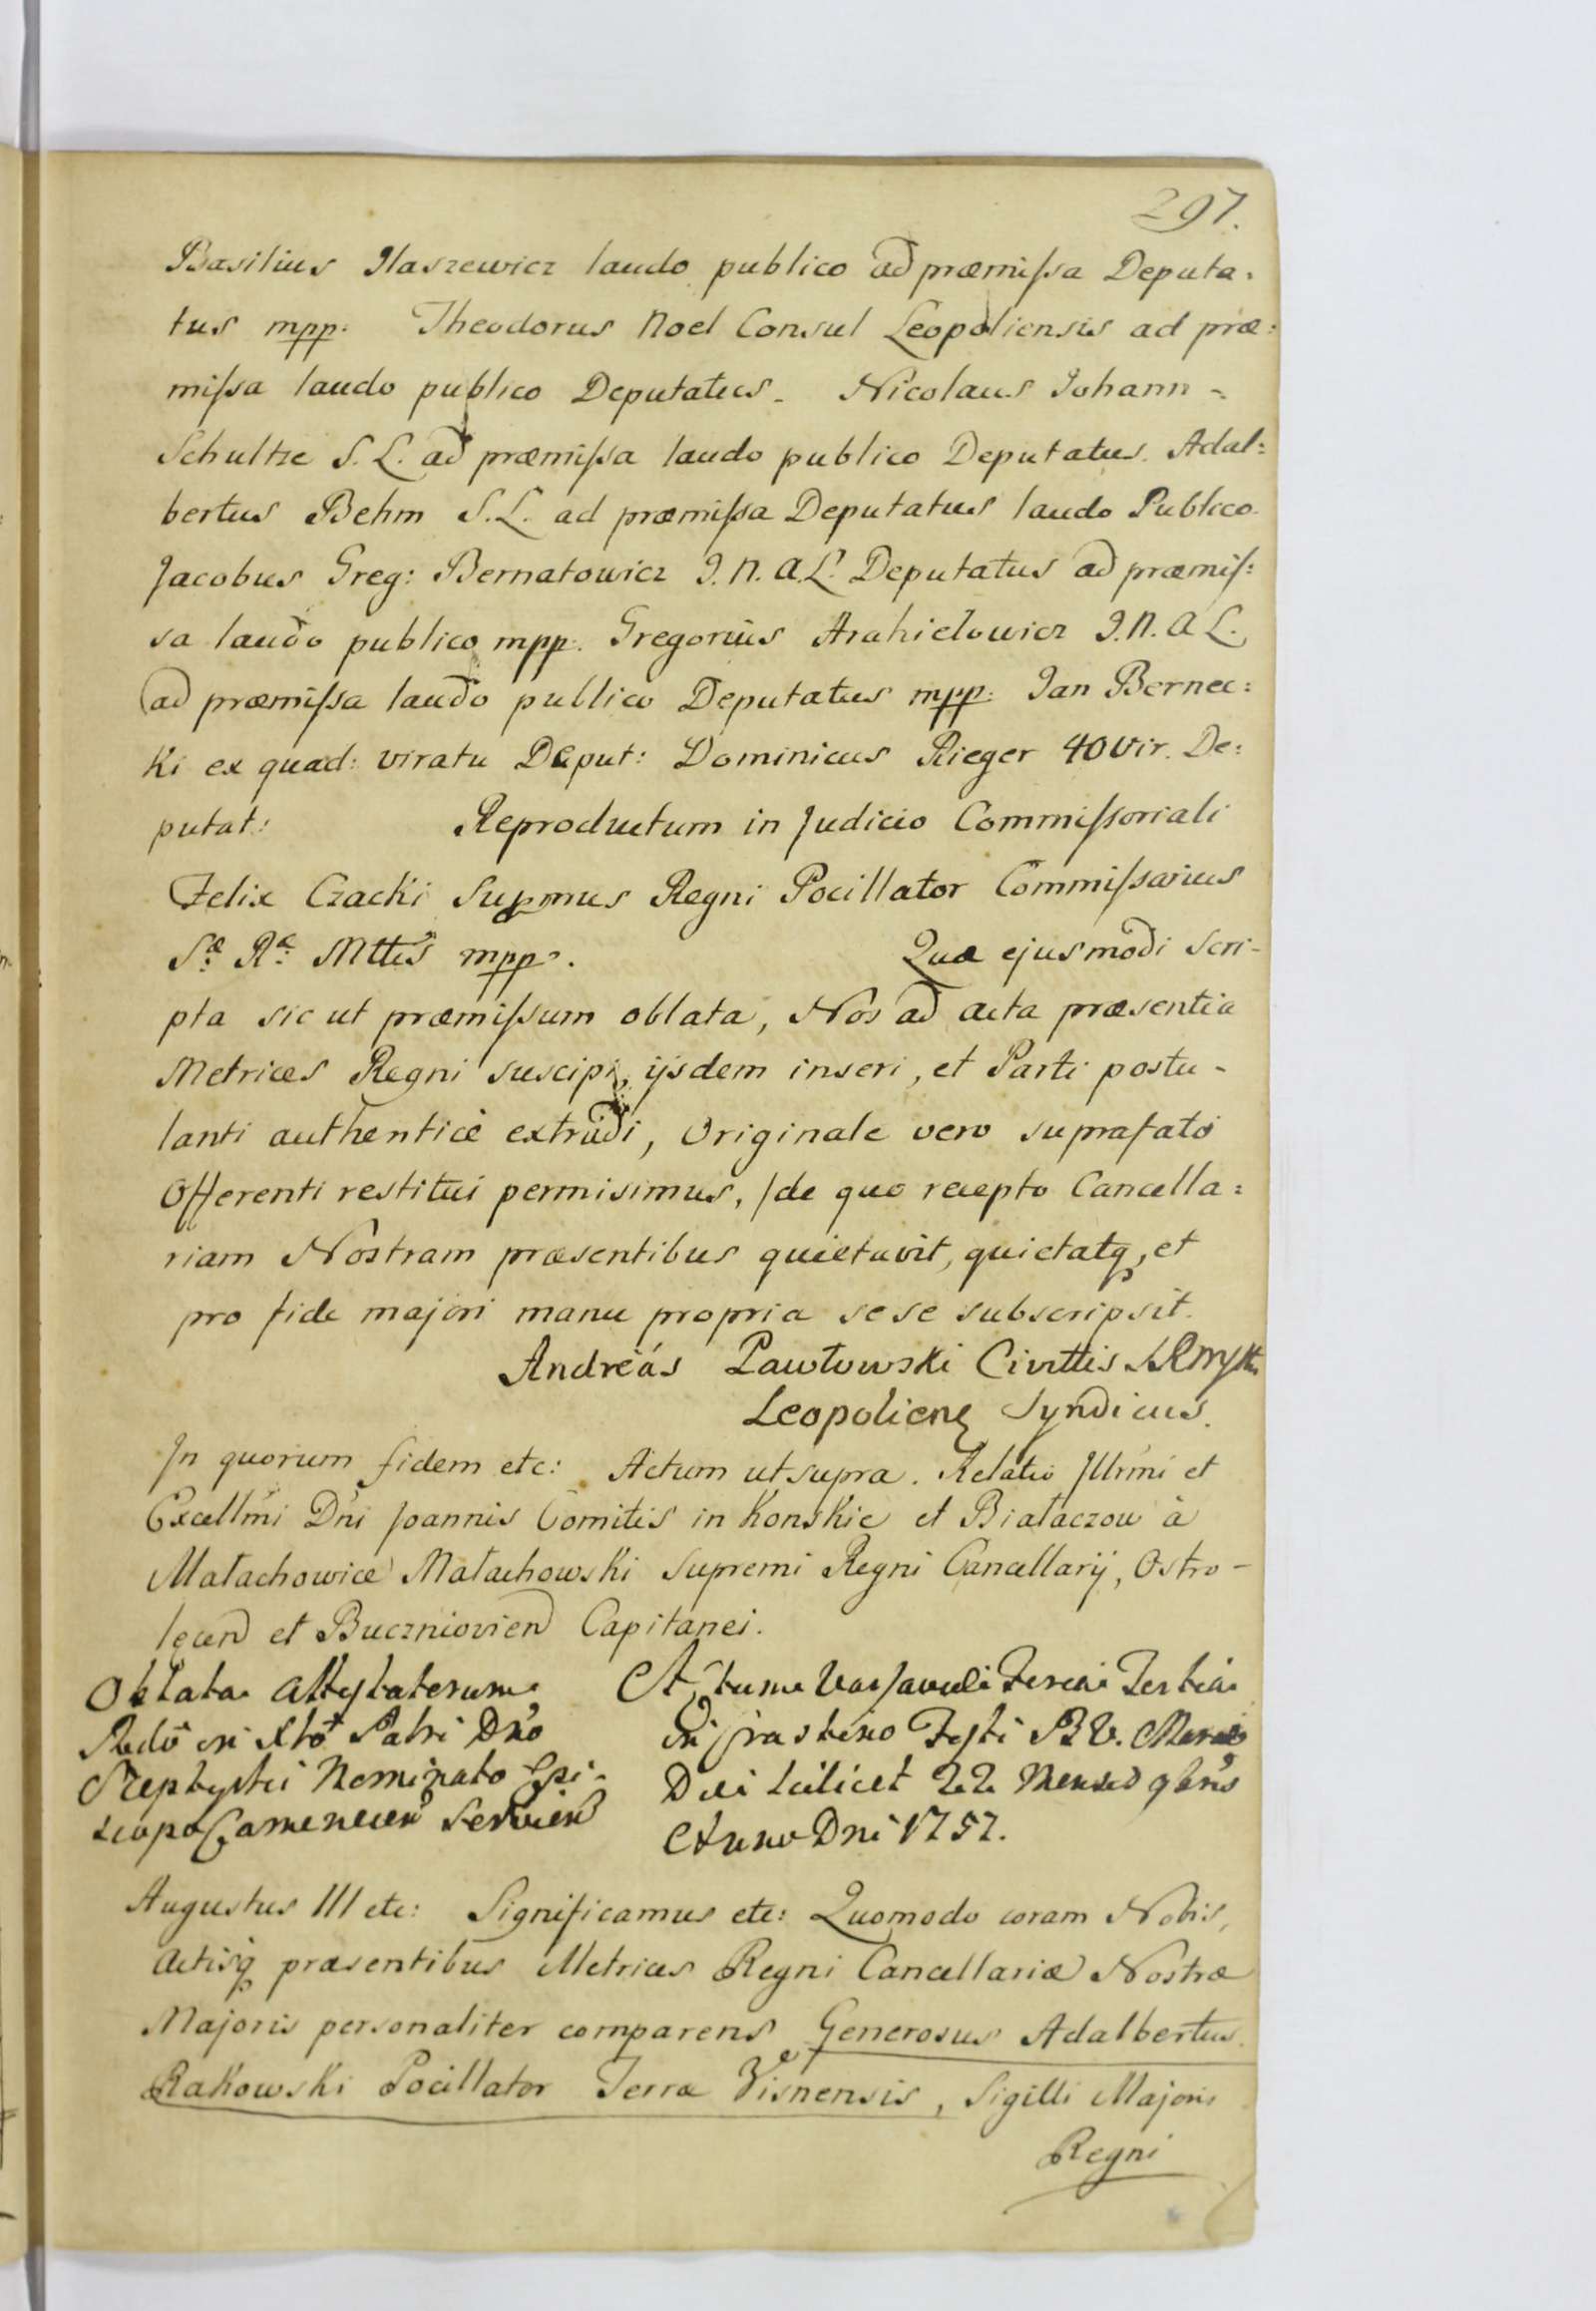 297.
Basilius Ilaszewicz laudo publico ad præmiſsa Deputa:
tus mpp. Theodorus Noel Consul Leopoliensis ad præ:
miſsa laudo publico Deputatus. Nicolaus Johann -
Schultze S. L. ad præmiſsa laudo publico Deputatus. Adal:
bertus Behm S. L. ad præmiſsa Deputatus laudo Publico.
Jacobus Greg: Bernatowicz J. N. A. L. Deputatus ad præmiſ:
sa laudo publico mpp. Gregorius Arakiełowicz J. N. A L.
ad præmiſsa laudo publico Deputatus mpp: Jan Bernec:
ki ex quad: viratu Deput: Dominicus Rieger 40 vir. De:
putat: Reproductum in Judicio Commiſsoriali
Felix Czacki Supmus Regni Pocillator Commiſsarius
Sæ Ræ Mttis mpp. Quæ ejusmodi Scri-
pta sic ut præmiſsum oblata, Nos ad acta præsentia
Metrices Regni suscipi, ijsdem inseri, et Parti postu-
lanti authenticè extradi, Originale vero suprafato
Offerenti restitui permisimus, /de quo recepto Cancella:
riam Nostram præsentibus quietavit, quietatq, et
pro fide majori manu propria sese subscripsit.
Andreas Pawłowski Civittis SRMytt
Leopolien Syndicus.
In quorum fidem etc: Actum ut supra. Relatio Jllrmi et
Excellmi Dni Joannis Comitis in Konskie et Białaczow à
Małachowice Małachowski Supremi Regni Cancellarij, Ostro-
lecen et Buczniovien Capitanei.
Oblata Attestatorum
Rndo in Xto Patri Dno
Szeptycki Nominato Epi-
scopo Camenecen Servien
Actum Varsaviæ Feria Tertia
in crastino Festi B. V. Mariæ
Die scilicet 22 Mensis 9bris
Anno Dni 1757.
Augustus III etc: Significamus etc: Quomodo coram Nobis,
Actisq præsentibus Metrices Regni Cancellariæ Nostræ
Majoris personaliter comparens Generosus Adalbertus
Rakowski Pocillator Terræ Visnensis, Sigilli Majoris
Regni